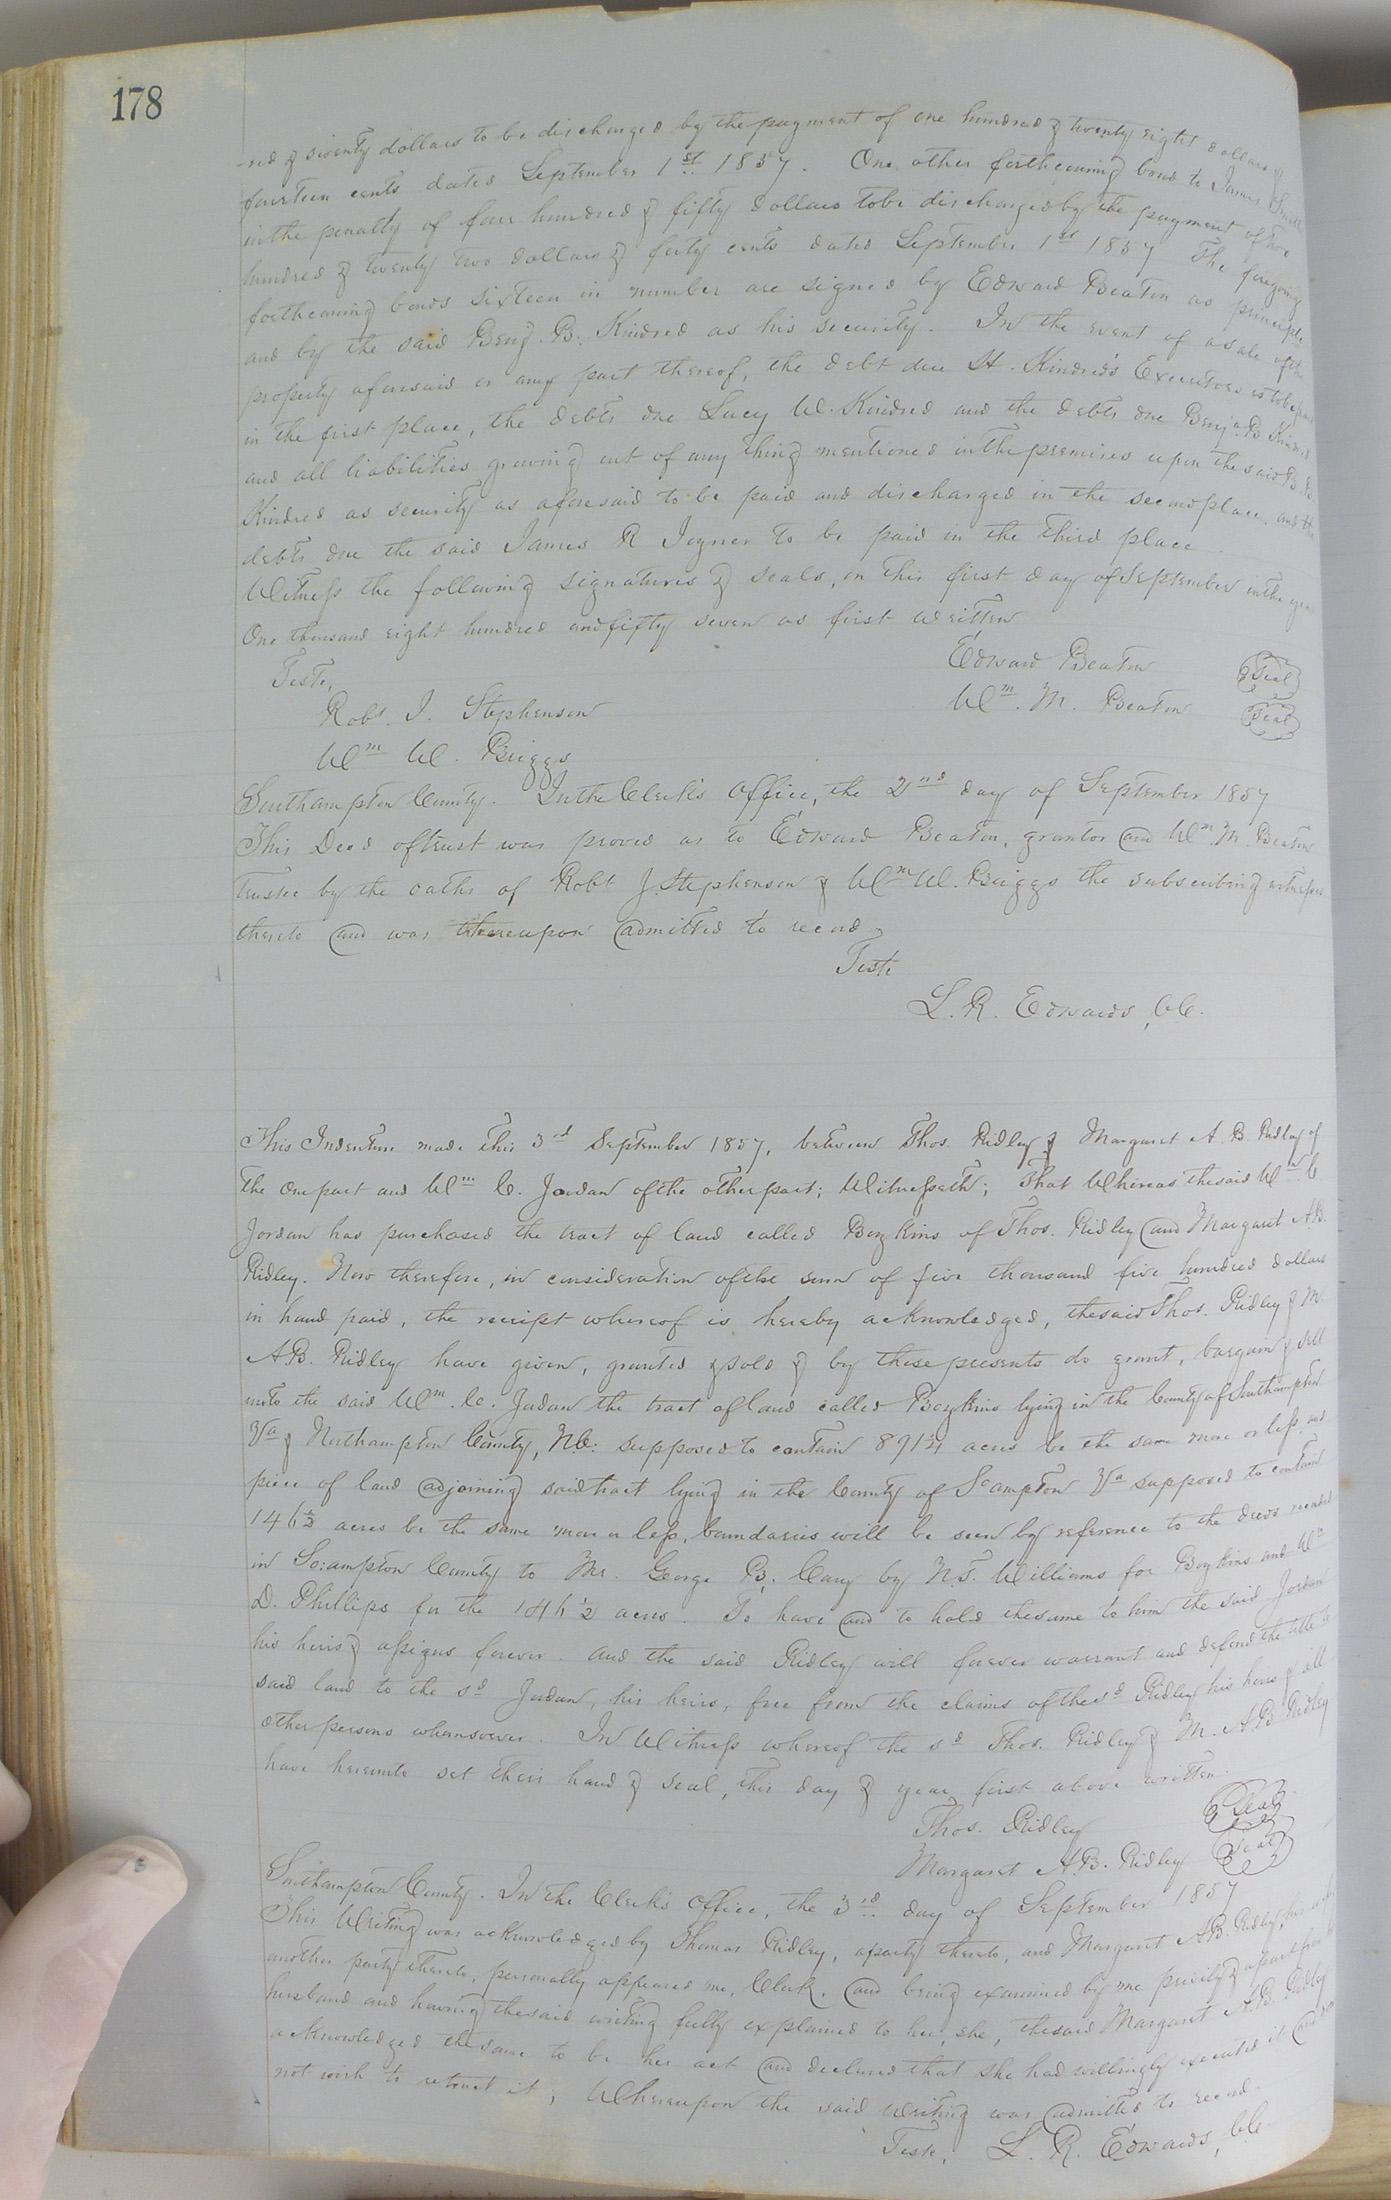 178
-red & seventy dollars to be discharged by the payment of one hundred & twenty eight dollars &
fourteen cents dated September 1st 1857. One other forthcoming bond to James Smith
in the penalty of four hundred & fifty dollars to be discharged by the payment of two
hundred & twenty two dollars & forty cents dated September 1st 1857 The foregoing
forthcoming bonds sixteen in number are signed by Edward Beaton as principle
and by the said Benj. B. Kindred as his security. In the event of a sale of the
property aforesaid or any part thereof, the debt due St. Kindred's Executors is to be paid
in the first place, the debts due Lucy W. Kindred and the debts due Benja. B Kindred
and all liabilities growing out of any thing mentioned in the premises upon the said B. B.
Kindred as security as aforesaid to be paid and discharged in the second place, and the
debts due the said James R Joyner to be paid in the third place.
Witness the following signatures & seals, on this first day of September in the year
One thousand eight hundred and fifty seven as first written
Edward Beaton Seal
Teste,
Wm. M. Beaton Seal
Robt. J. Stephenson
Wm W. Briggs
Southampton County. In the Clerk's Office, the 2nd day of September 1857
This Deed of trust was proved as to Edward Beaton, grantor and Wm M. Beaton
trustee by the oaths of Robt J. Stephenson & Wm W. Briggs the subscribing witnesses
thereto and was thereupon admitted to record
Teste
L. R. Edwards, CC.
This Indenture made this 3rd September 1857, between Thos. Ridley & Margaret A. B. Ridley of
the one part and Wm C. Jordan of the other part; Witnesseth; That Whereas the said Wm C
Jordan has purchased the tract of land called Boykins of Thos. Ridley and Margaret A.B.
Ridley. Now therefore, in consideration of the sum of five thousand five hundred dollars
in hand paid, the receipt whereof is hereby acknowledged, the said Thos. Ridley & M.
A.B. Ridley have given, granted & sold & by these presents do grant, bargain & sell
unto the said Wm. C. Jordan the tract of land called Boykins lying in the County of Southampton
Va & Northampton County, NC: supposed to contain 891 1/4 acres be the same more or less and
piece of land adjoining said tract lying in the County of So ampton Va supposed to contain
146 1/2 acres be the same more or less, boundaries will be seen by reference to the deeds recorded
in So:ampton County to Mr. George B. Cary by N.T. Williams for Boykins and Wm
D. Phillips for the 146 1/2 acres. To have and to hold the same to him the said Jordan
his heirs & assigns forever. And the said Ridley will forever warrant and defend the title to
said land to the sd Jordan, his heirs, free from the claims of the sd Ridley his heirs & all
other persons whomsoever. In Witness whereof the sd Thos. Ridley & M. A.B. Ridley
have hereunto set their hand & seal, this day & year first above written.
Thos. Ridley Seal
Margaret A.B. Ridley Seal
Southampton County. In the Clerk's Office, the 3rd day of September 1857
This Writing was acknowledged by Thomas Ridley, a party thereto, and Margaret A.B. Ridley, his wife
another party thereto, personally appeared me, Clerk, and being examined by me privily & apart from
husband and having the said writing fully explained to her, she, the said Margaret A. B. Ridley
acknowledged the same to be her act and declared that she had willingly executed it and does
not wish to retract it; Whereupon the said writing was admitted to record.
Teste, L. R. Edwards, CC